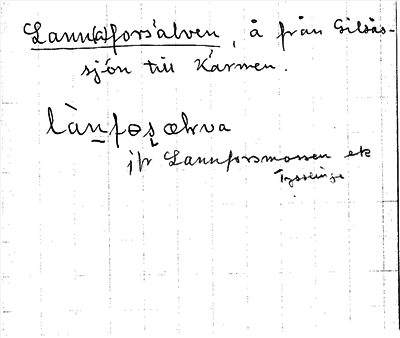 Lann(a)forsälven, å från Gilsås-
sjön till Kärmen.
lànfos̩ ælva
jfr Lannforsmossen ek
Tysslinge